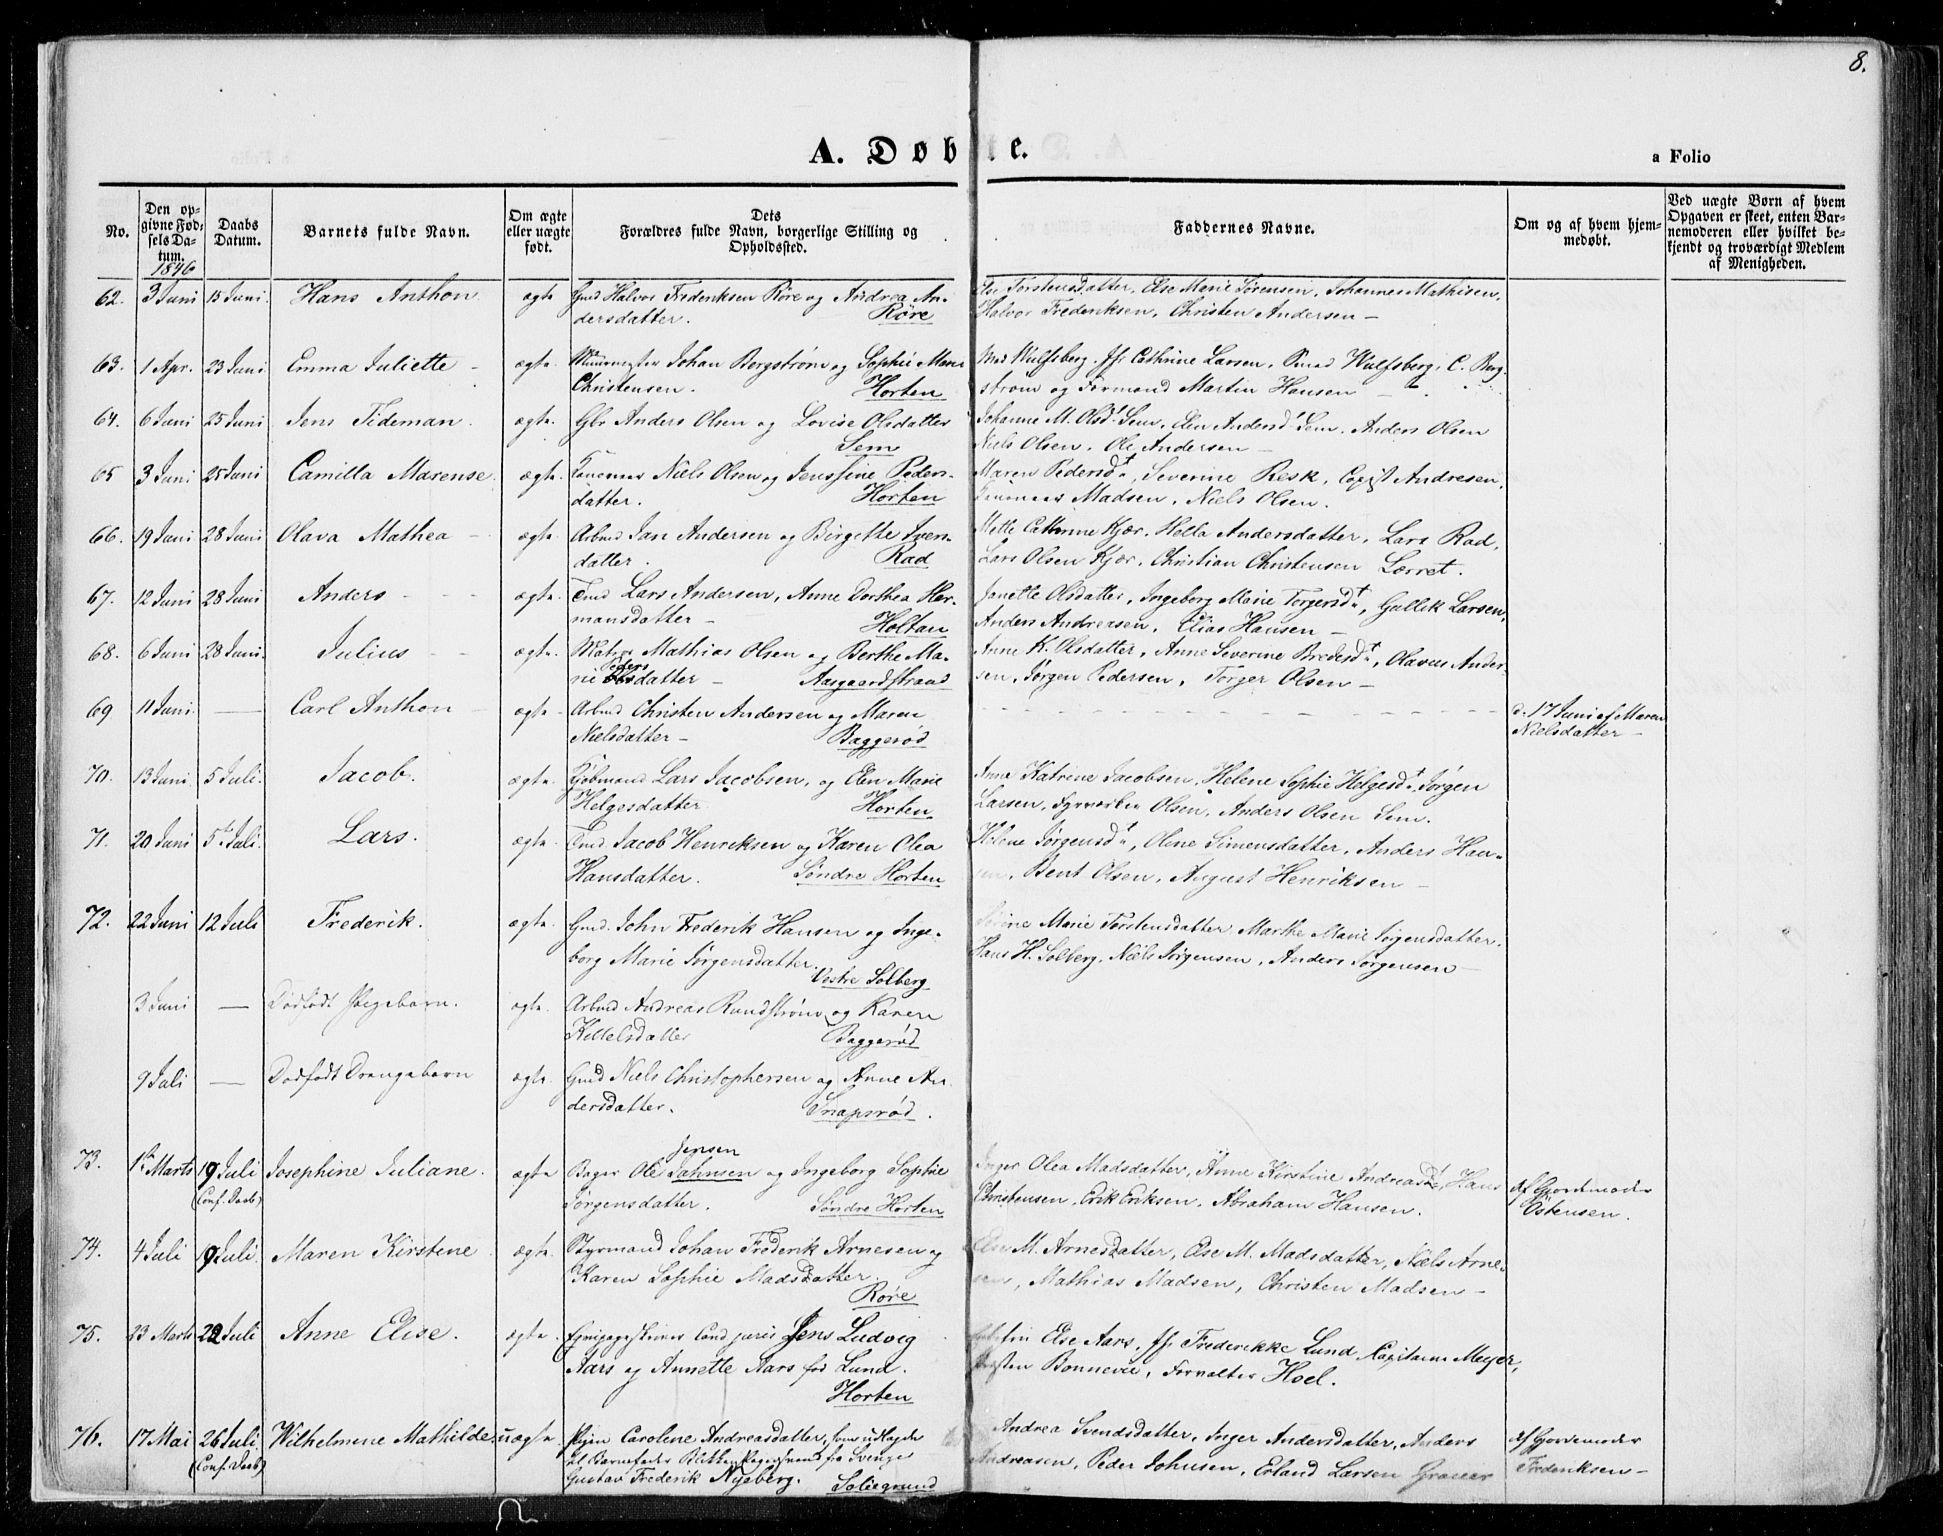 8.
A. Døbte.
a Folio
No.
Den opgivne Fødsels Datum.
Daabs Datum.
Barnets fulde Navn.
Om ægte eller uægte født.
Dets Forældres fulde Navn, borgerlige Stilling og Opholdssted.
Faddernes Navne.
Om og af hvem hjemmedøbt.
Ved uægte Børn af hvem Opgaven er skeet, enten Barnemoderen eller hvilket bekjendt og troværdigt Medlem af Menigheden.
1846
62. 3 Juni 15 Juni. Hans Anthon ægte Gmd Halvor Frederiksen Røre og Andrea An- Else Torstensdatter, Else Marie Sørensen, Johannes Mathisen,
dersdatter. Røre Halvor Frederiksen, Christen Andersen –
63. 1 Apr. 23 Juni Emma Juliette – ægte Muurmester Johan Bergstrøm og Sophie Marie Mad Wulfsberg, Jfr Cathrine Larsen, Wulfsberg, C. Berg-
Christensen. Horten strøm og Formand Martin Hansen –
64. 6 Juni 25 Juni Jens Tideman. ægte. Gbr Anders Olsen og Lovise Olsdatter Johanne M. Olsd. Sem, Elen Andersd. Sem, Anders Olsen
Sem Niels Olsen, Ole Andersen –
65 3 Juni 25 Juni Camilla Marense. ægte. Niels Olsen og Jenssine Peders- Maren Pedersdt, Severine Resk, Andresen,
datter. Horten Madsen, Niels Olsen.
66. 19 Juni 28 Juni Olava Mathea – ægte. Arbmd Jan Andersen og Birgitte Iven- Mette Cathrine Kjær, Hella Andersdatter, Lars Rad,
datter. Rad Lars Olsen Kjær, Christian Christensen Lærret.
67. 12 Juni 28 Juni Anders – – – ægte. Tmd Lars Andersen, Anne Dorthea Her- Janette Olsdatter, Ingeborg Marie Torgersdt, Gullik Larsen,
mansdatter – Holtan Anders Andreasen, Elias Hansen –
68. 6 Juni 28 Juni. Julius – – ægte. Matros Mathias Olsen og Berthe Ma- Anne K. Olsdatter, Anne Severine Bredesdt, Olavus Ander-
Peders
rie datter – Aasgaardstrand sen, Jørgen Pedersen, Torger Olsen –
69 11 Juni. — Carl Anthon – ægte. Arbmd Christen Andersen og Maren – – – – – – – – – d. 17 Juni af Maren
Nielsdatter – Baggerød Nielsdatter –
70. 13 Juni 5 Juli. Jacob. ægte. Kjøbmand Lars Jacobsen, og Elen Marie Anne Katrine Jacobsen, Helene Sophie Helgesdt, Jørgen
Helgesdatter Horten Larsen, Olsen, Anders Olsen Sem.
71. 20 Juni 5te Juli. Lars. ægte. Tmd Jacob Henriksen og Karen Olea Helene Jørgensdt, Oline Simensdatter, Anders Han-
Hansdatter. Søndre Horten sen, Bent Olsen, August Henriksen –
72. 22 Juni 12 Juli Frederik. ægte. Gmd. John Frederik Hansen og Inge- Marie Torstensdatter, Marthe Marie Jørgensdatter,
borg Marie Jørgensdatter. Vestre Solberg Hans H. Solberg, Niels Jørgensen, Anders Jørgensen –
3 Juni — Dødfødt Pigebarn. ægte. Arbmd Andreas Rundstrøm og Karen
Kittelsdatter Baggerød
9 Juli — Dødfødt Drengebarn ægte. Gmd Niels Christophersen og Anne An-
dersdatter. Snapsrød.
Jensen
73. 1te Marts 19 Juli Josephine Juliane. ægte Bager Ole Jahnsen og Ingeborg Sophie Inger Olea Madsdatter, Anne Kirstine Andreasdt, Hans af Gjordemoder
(Conf. Daab) Jørgensdatter. Søndre Horten Christensen, Erik Eriksen, Abraham Hansen. Østensen.
74. 4 Juli 19 Juli. Maren Kirstine ægte. Styrmand Johan Frederik Arnesen og Else M. Arnesdatter, Else M. Madsdatter, Niels Arne-
Karen Sophie Madsdatter. sen, Mathias Madsen, Christen Madsen –
Røre
75. 23 Marts 22 Juli Anne Elise. ægte. Cand juris Jens Ludvig Else Aars, Jfr Frederikke Lund, Capitain Meyer,
Aars og Annette Aars fød Lund. Bonnevie, Forvalter Hoel.
Horten
76. 17 Mai 26 Juli Wilhelmine Mathilde. uægte Pigen Caroline Andreasdatter, som udlagde Andrea Svendsdatter, Inger Andersdatter, Anders af Gjordemoder
(Conf. Daab) til Barnefader fra Sverige Andreasen, Peder Johnsen, Erland Larsen Graver Frederiksen –
Gustav Frederik Nyeberg. Soliegrund